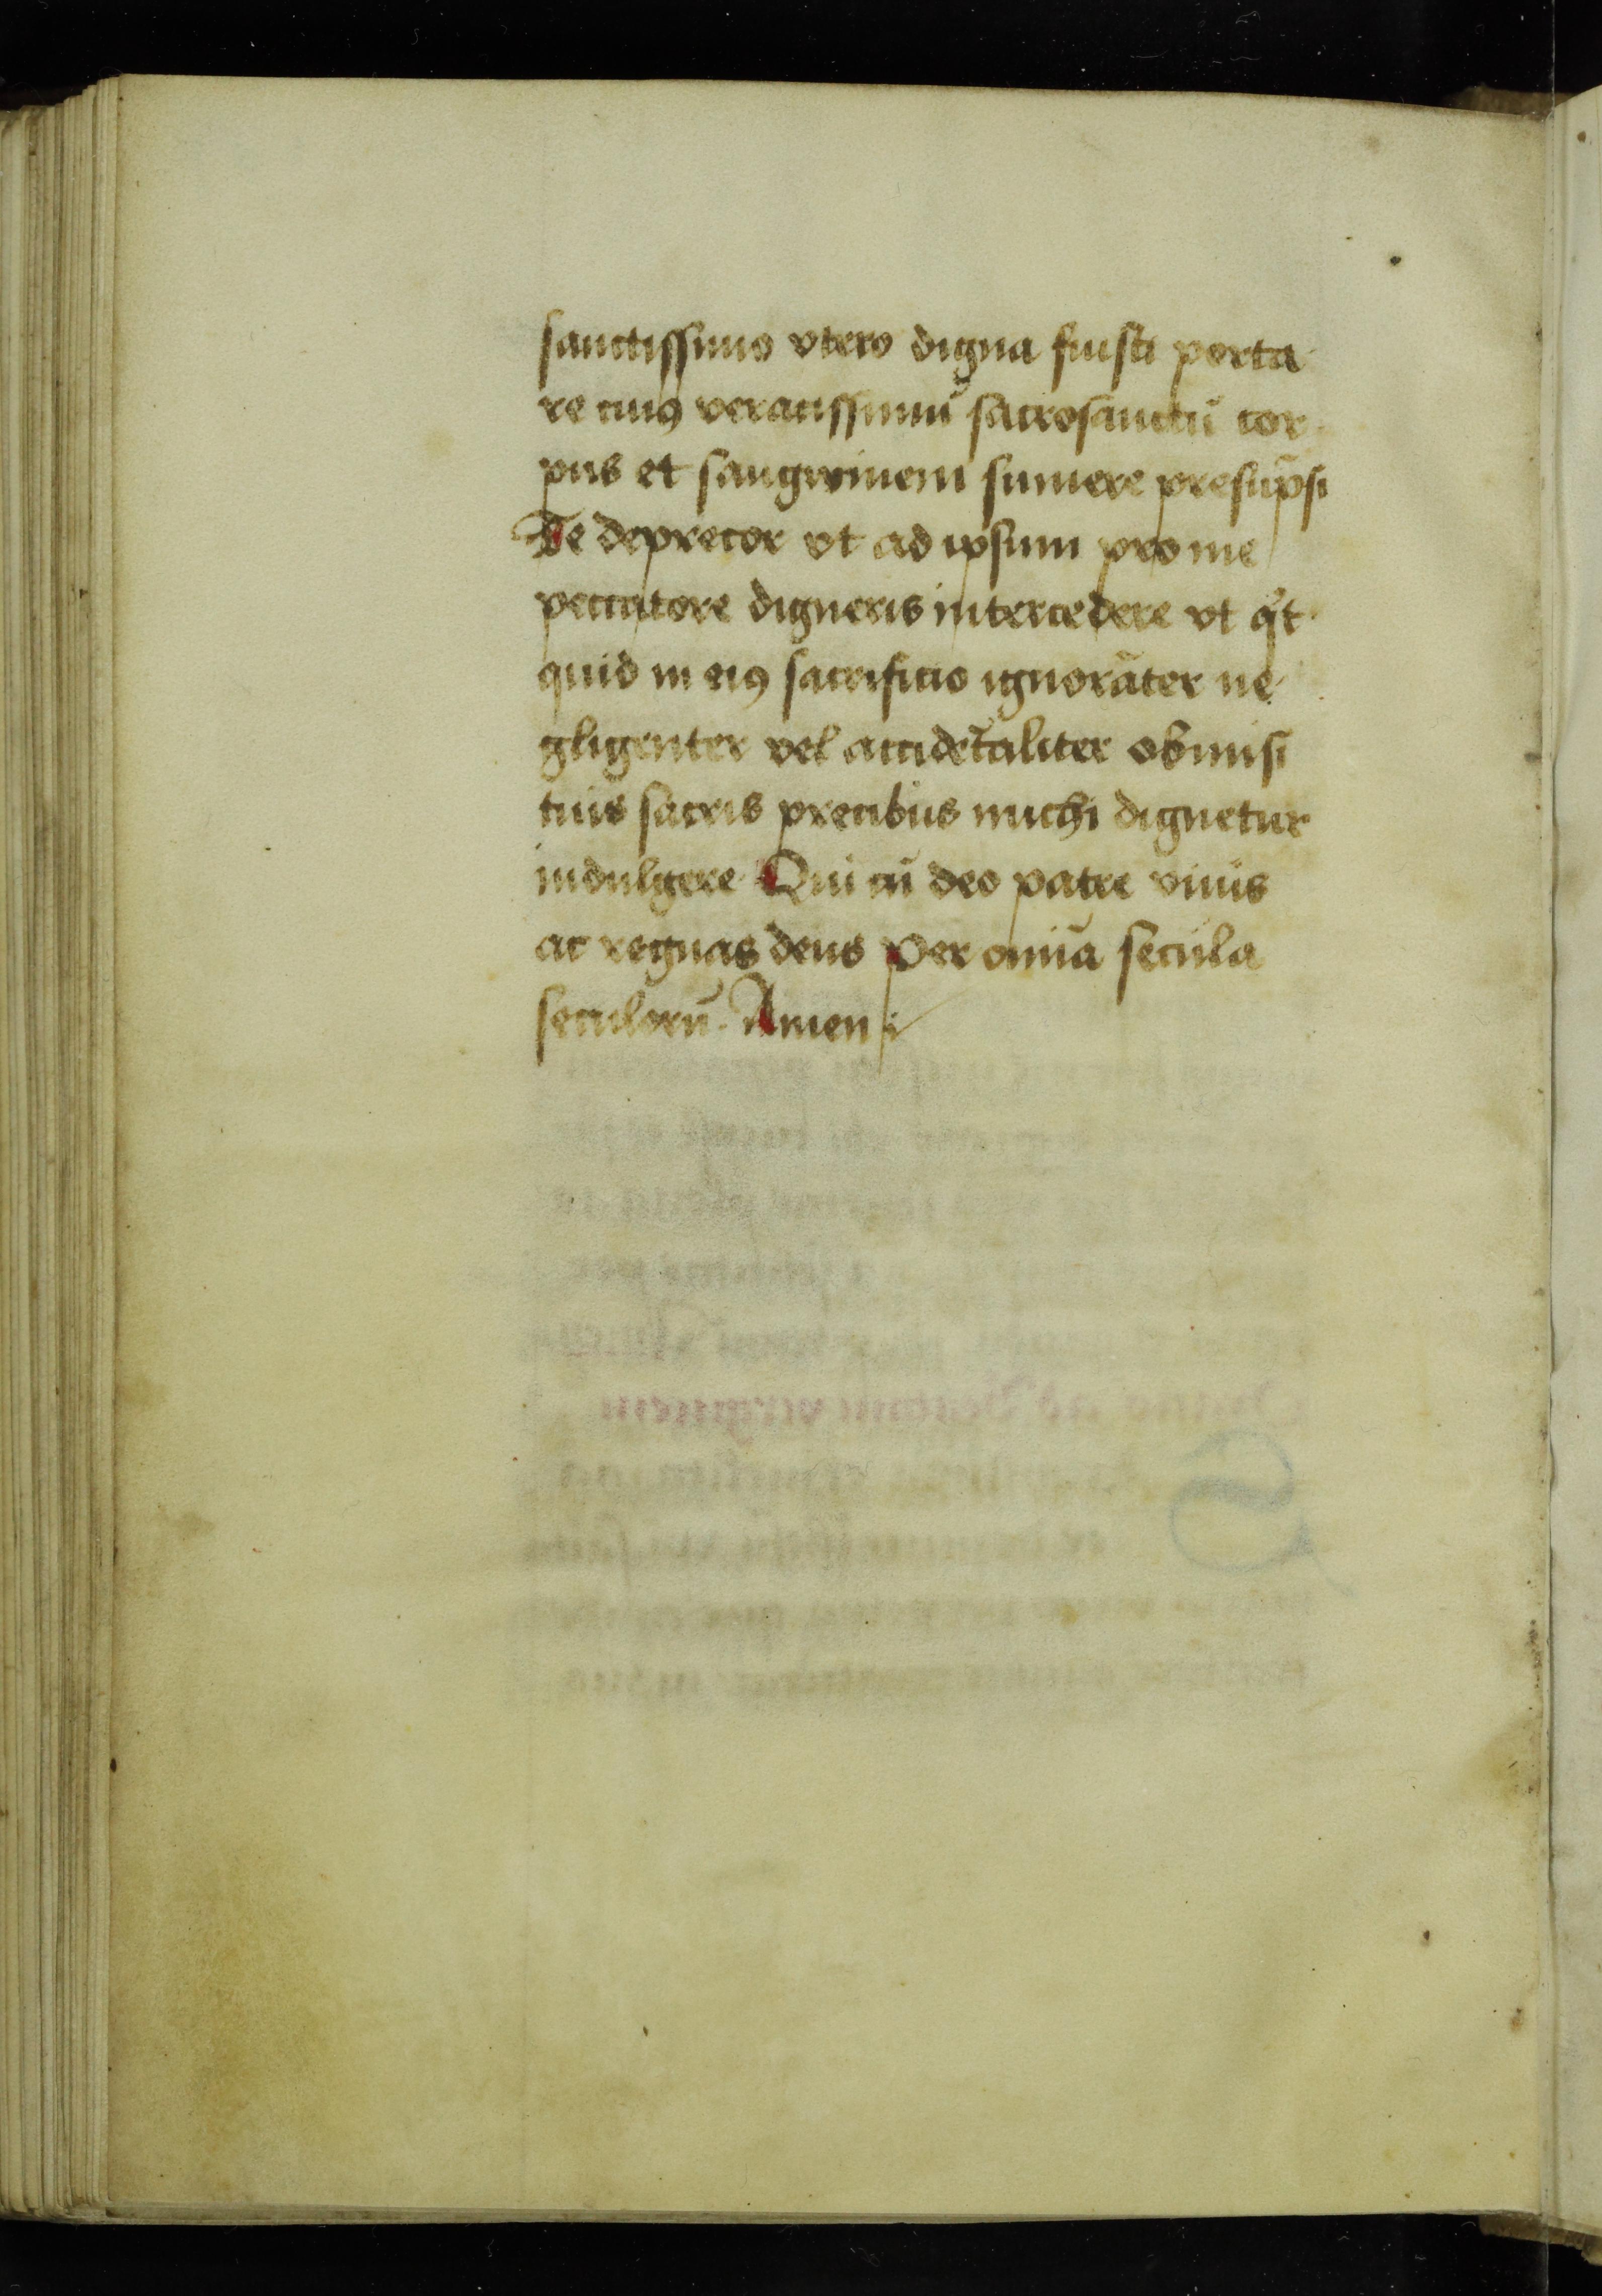 sanctissimo vtero digna fuisti porta
re cuiꝯ veracissimũ sacrosanctũ cor
pus et sangwinem sumere presũpsi
Te deprecor vt ad ipsum pro me
peccatore digneris intercedere vt
quid in eiꝯ sacrificio ignorãter ne
gligenter vel accidẽtaliter obmisi
tuis sacris precibus michi dignetur
indulgere Qui cũ deo patre viuis
ac regnas deus Per omĩa secula
seculorũ. Amen